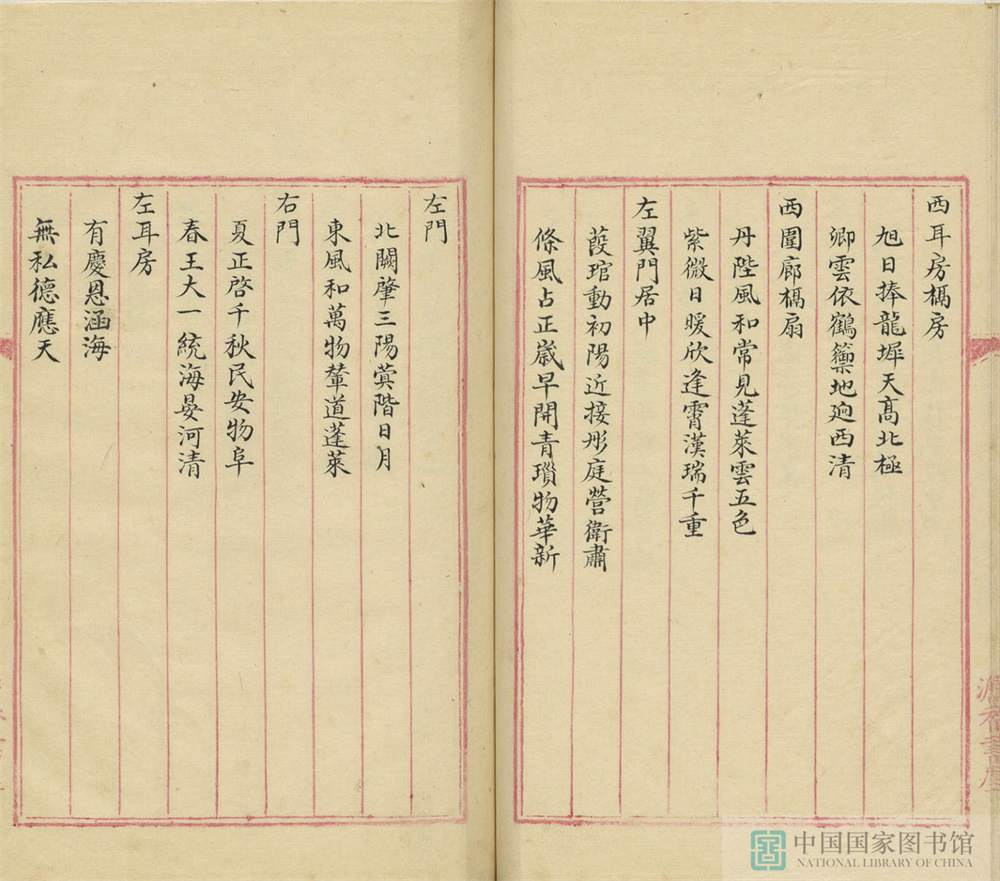 西耳房槅房
旭日捧龍墀天髙北極
卿雲依鶴籞地迥西清
西圍廊槅扇
丹陛風和常見蓬萊雲五色
紫微日暖欣逢霄漢瑞千重
左翼門居中
葭琯動初陽近接彤庭營衛肅
條風占正歲早開青瑣物華新
左門
北闕肇三陽蓂階日月
東風和萬物輦道蓬萊
右門
夏正啓千秋民安物阜
春王大一統海晏河清
左耳房
有慶恩涵海
無私德應天
中国国家图书馆
NATIONAL LIBRARY OF CHINA